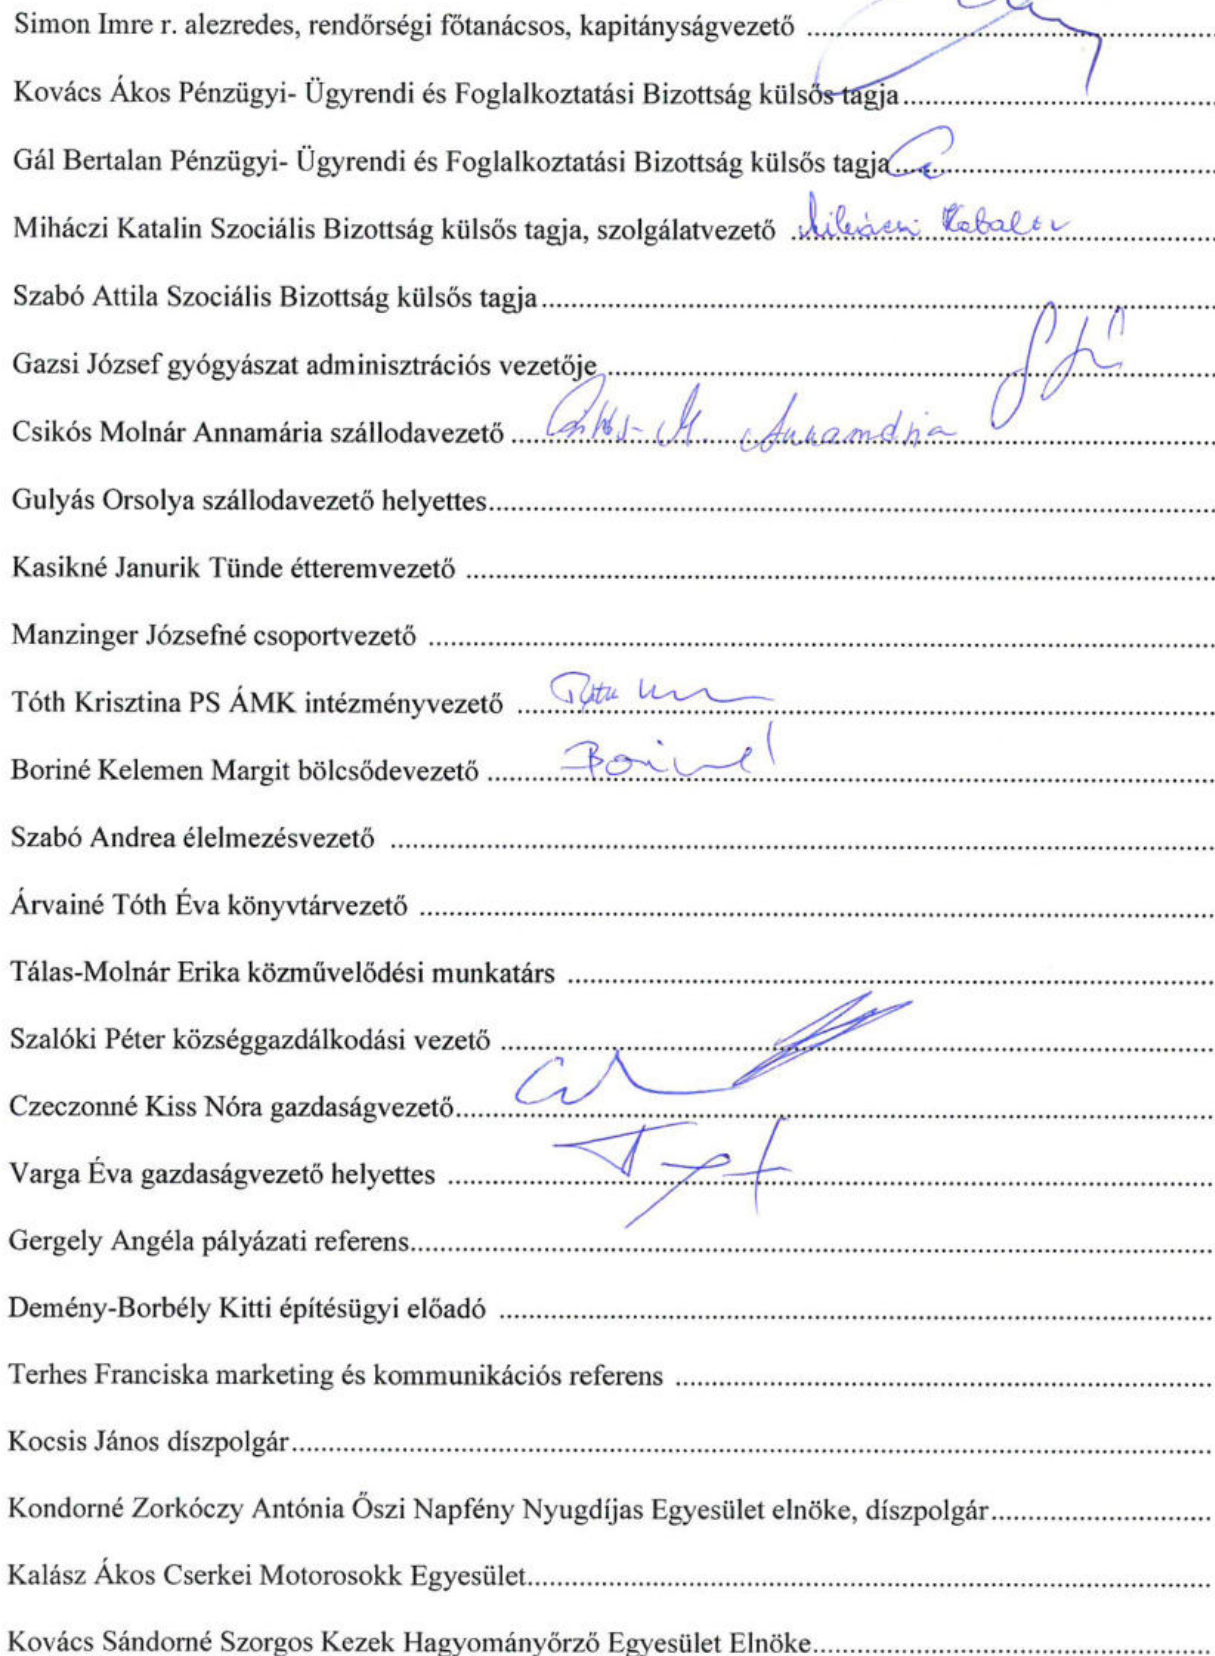 Simon Imre r. alezredes, rendőrségi főtanácsos, kapitányságvezető
Kovács Ákos Pénzügyi- Ügyrendi és Foglalkoztatási Bizottság külsős tagja
Gál Bertalan Pénzügyi- Ügyrendi és Foglalkoztatási Bizottság külsős tagja
Miháczi Katalin Szociális Bizottság külsős tagja, szolgálatvezető
Szabó Attila Szociális Bizottság külsős tagja
Gazsi József gyógyászat adminisztrációs vezetője
Csikós Molnár Annamária szállodavezető
Gulyás Orsolya szállodavezető helyettes
Kasikné Janurik Tünde étteremvezető
Manzinger Józsefné csoportvezető
Tóth Krisztina PS ÁMK intézményvezető
Boriné Kelemen Margit bölcsődevezető
Szabó Andrea élelmezésvezető
Árvainé Tóth Éva könyvtárvezető
Tálas-Molnár Erika közművelődési munkatárs
Szalóki Péter községgazdálkodási vezető
Czeczonné Kiss Nóra gazdaságvezető
Varga Éva gazdaságvezető helyettes
Gergely Angéla pályázati referens
Demény-Borbély Kitti építésügyi előadó
Terhes Franciska marketing és kommunikációs referens
Kocsis János díszpolgár
Kondorné Zorkóczy Antónia Őszi Napfény Nyugdíjas Egyesület elnöke, díszpolgár
Kalász Ákos Cserkei Motorosokk Egyesület
Kovács Sándorné Szorgos Kezek Hagyományőrző Egyesület Elnöke